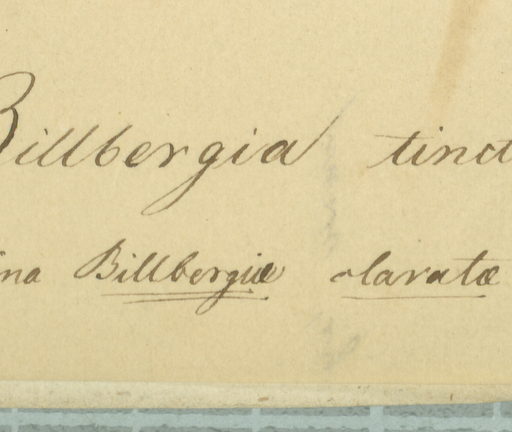 Billbergia tinct
na Billbergiæ clavatæ